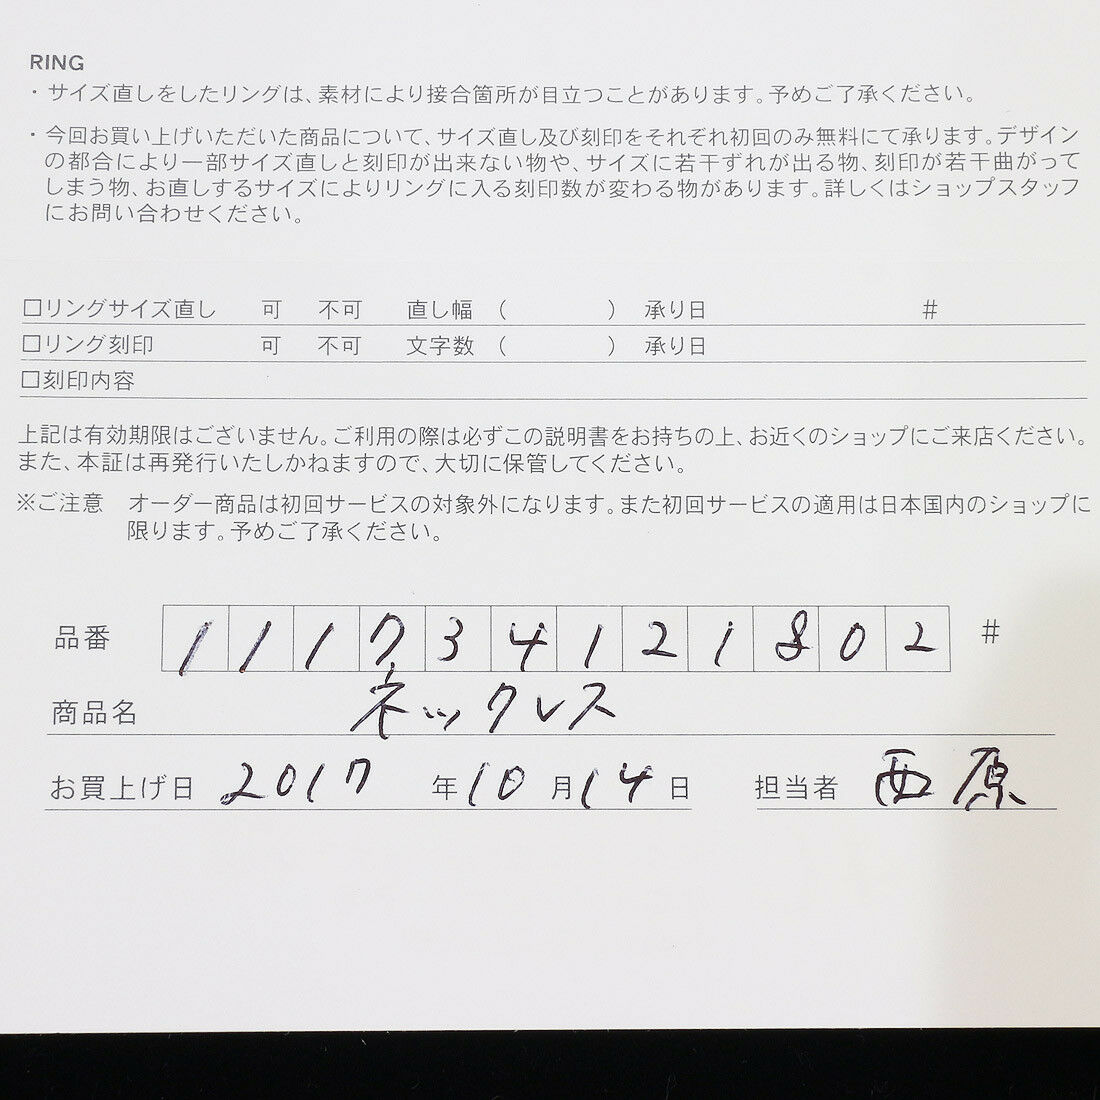 RING
・サイズ直しをしたリングは、素材により接合箇所が目立つことがあります。予めご了承ください。
・今回お買い上げいただいた商品について、サイズ直し及び刻印をそれぞれ初回のみ無料にて承ります。デザイン
の都合により一部サイズ直しと刻印が出来ない物や、サイズに若干ずれが出る物、刻印が若干曲がって
しまう物、お直しするサイズによりリングに入る刻印数が変わる物があります。詳しくはショップスタッフ
にお問い合わせください。
□リングサイズ直し 可 不可 直し幅 ( ) 承り日 #
□リング刻印 可 不可 文字数 ( ) 承り日
□刻印内容
上記は有効期限はございません。ご利用の際は必ずこの説明書をお持ちの上、お近くのショップにご来店ください。
また、本証は再発行いたしかねますので、大切に保管してください。
※ご注意 オーダー商品は初回サービスの対象外になります。また初回サービスの適用は日本国内のショップに
限ります。予めご了承ください。
品番 111734121802 #
商品名 ネックレス
お買上げ日 2017 年 10 月 14 日 担当者 西原